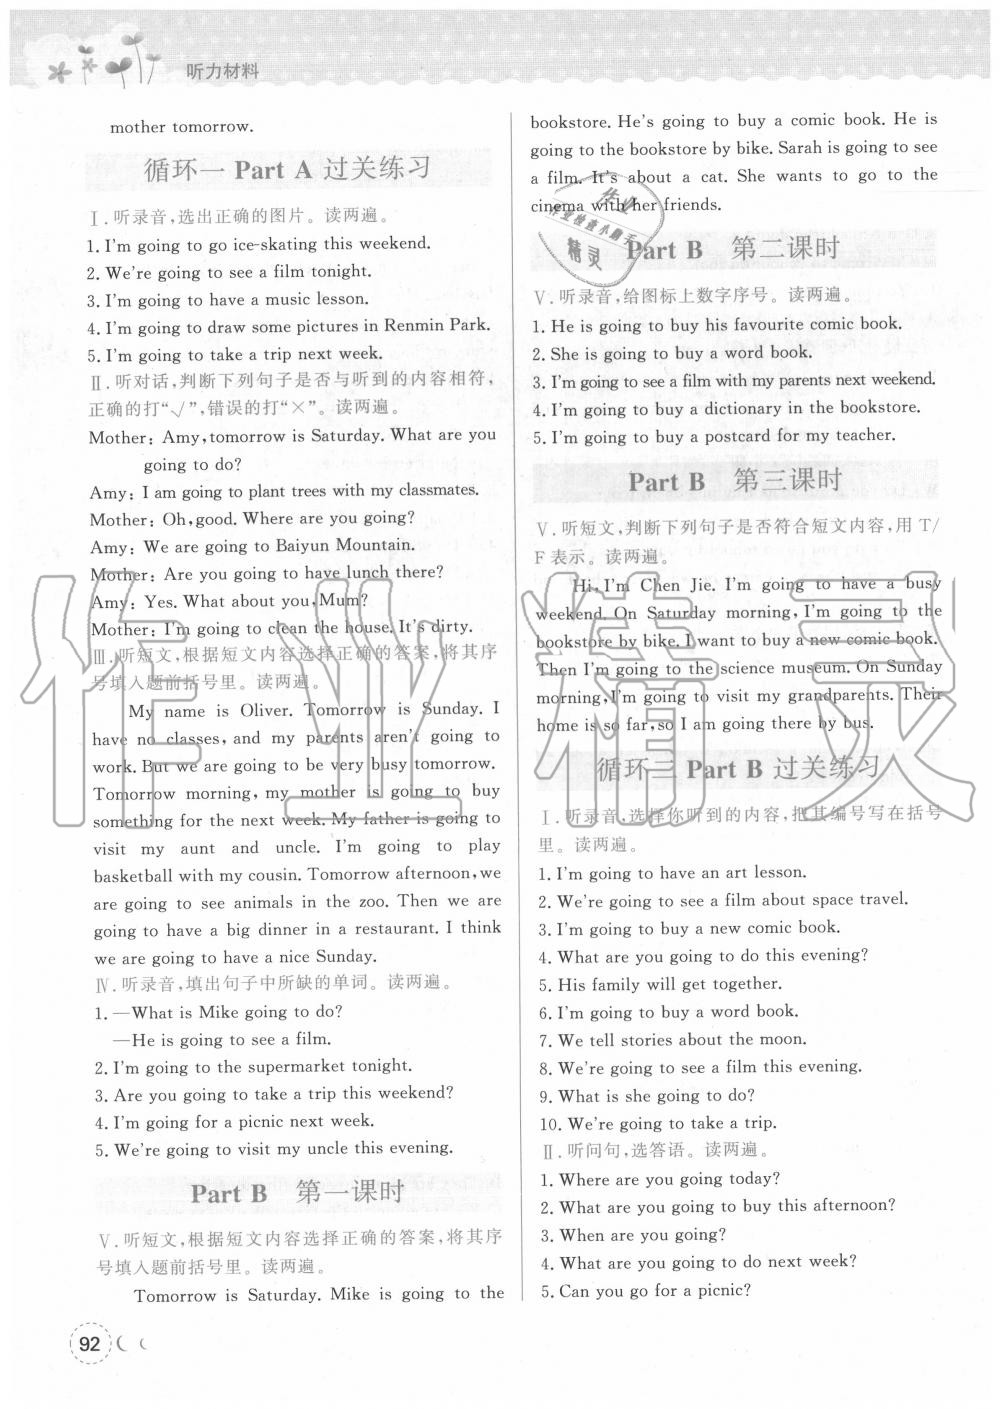 听力材料
mother tomorrow.
循环一 Part A 过关练习
Ⅰ.听录音,选出正确的图片。读两遍。
1. I'm going to go ice-skating this weekend.
2. We're going to see a film tonight.
3. I'm going to have a music lesson.
4. I'm going to draw some pictures in Renmin Park.
5. I'm going to take a trip next week.
Ⅱ.听对话,判断下列句子是否与听到的内容相符,
正确的打“√”,错误的打“×”。读两遍。
Mother: Amy, tomorrow is Saturday. What are you
going to do?
Amy: I am going to plant trees with my classmates.
Mother: Oh, good. Where are you going?
Amy: We are going to Baiyun Mountain.
Mother: Are you going to have lunch there?
Amy: Yes. What about you, Mum?
Mother: I'm going to clean the house. It's dirty.
Ⅲ.听短文,根据短文内容选择正确的答案,将其序
号填入题前括号里。读两遍。
My name is Oliver. Tomorrow is Sunday. I
have no classes, and my parents aren't going to
work. But we are going to be very busy tomorrow.
Tomorrow morning, my mother is going to buy
something for the next week. My father is going to
visit my aunt and uncle. I'm going to play
basketball with my cousin. Tomorrow afternoon, we
are going to see animals in the zoo. Then we are
going to have a big dinner in a restaurant. I think
we are going to have a nice Sunday.
Ⅳ.听录音,填出句子中所缺的单词。读两遍。
1. —What is Mike going to do?
—He is going to see a film.
2. I'm going to the supermarket tonight.
3. Are you going to take a trip this weekend?
4. I'm going for a picnic next week.
5. We're going to visit my uncle this evening.
Part B 第一课时
Ⅴ.听短文,根据短文内容选择正确的答案,将其序
号填入题前括号里。读两遍。
Tomorrow is Saturday. Mike is going to the
bookstore. He's going to buy a comic book. He is
going to the bookstore by bike. Sarah is going to see
a film. It's about a cat. She wants to go to the
cinema with her friends.
Part B 第二课时
Ⅴ.听录音,给图标上数字序号。读两遍。
1. He is going to buy his favourite comic book.
2. She is going to buy a word book.
3. I'm going to see a film with my parents next weekend.
4. I'm going to buy a dictionary in the bookstore.
5. I'm going to buy a postcard for my teacher.
Part B 第三课时
Ⅴ.听短文,判断下列句子是否符合短文内容,用 T/
F 表示。读两遍。
Hi, I'm Chen Jie. I'm going to have a busy
weekend. On Saturday morning, I'm going to the
bookstore by bike. I want to buy a new comic book.
Then I'm going to the science museum. On Sunday
morning, I'm going to visit my grandparents. Their
home is so far, so I am going there by bus.
循环三 Part B 过关练习
Ⅰ.听录音,选择你听到的内容,把其编号写在括号
里。读两遍。
1. I'm going to have an art lesson.
2. We're going to see a film about space travel.
3. I'm going to buy a new comic book.
4. What are you going to do this evening?
5. His family will get together.
6. I'm going to buy a word book.
7. We tell stories about the moon.
8. We're going to see a film this evening.
9. What is she going to do?
10. We're going to take a trip.
Ⅱ.听问句,选答语。读两遍。
1. Where are you going today?
2. What are you going to buy this afternoon?
3. When are you going?
4. What are you going to do next week?
5. Can you go for a picnic?
92
作业精灵
作业
作业检查小帮手
精灵